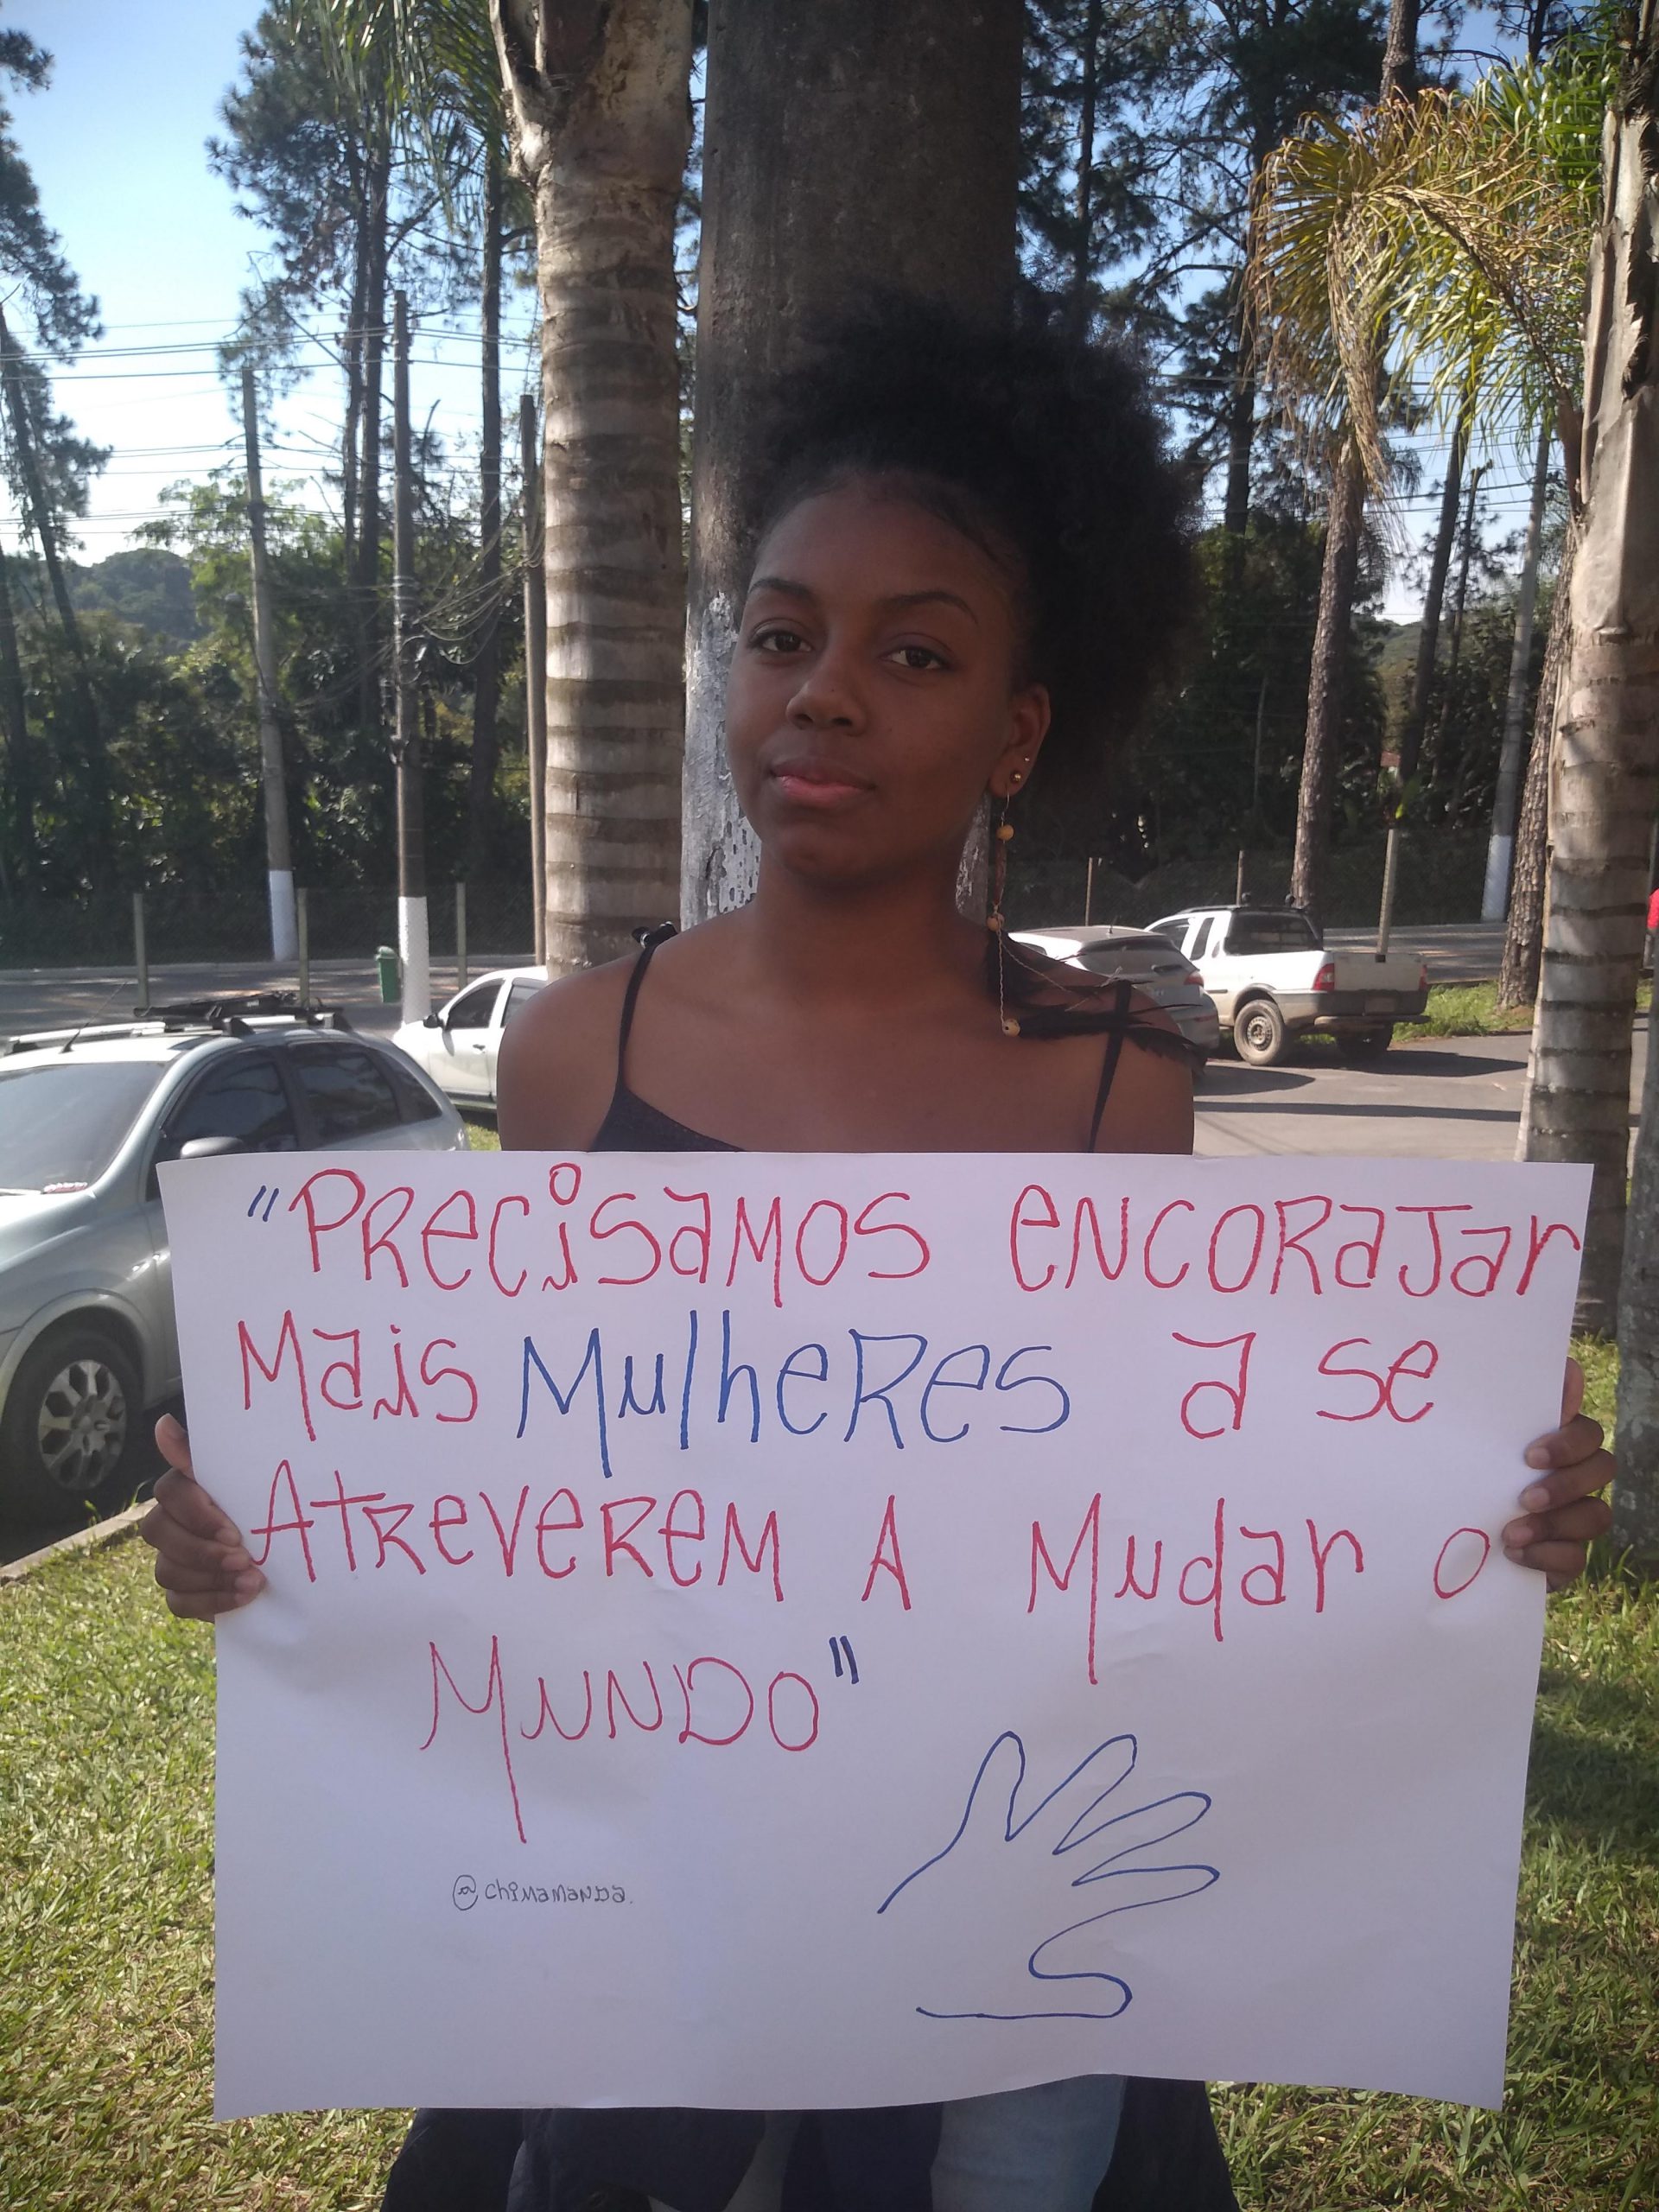 "Precisamos encorajar
Mais Mulheres a se
Atreverem A Mudar o
Mundo"
@chimamanda.